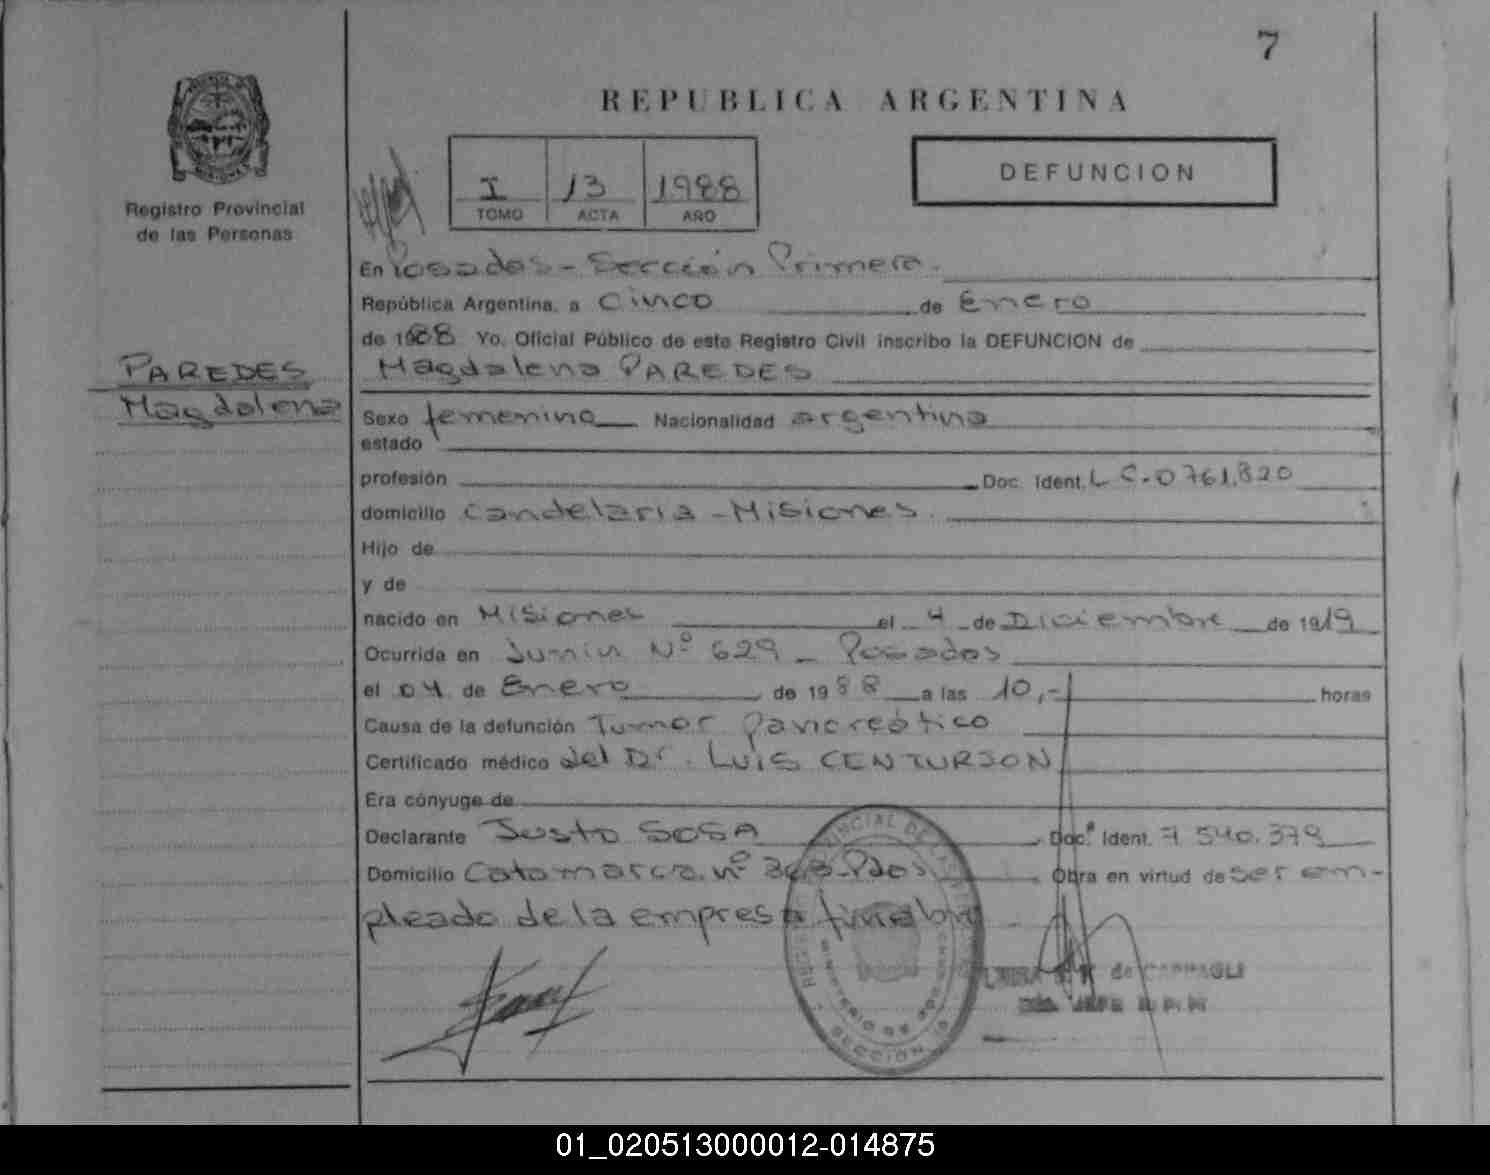 7
REPUBLICA ARGENTINA
Registro Provincial
de las Personas
I 13 1988
TOMO ACTA AÑO
DEFUNCION
En Posadas - Sección Primera.
República Argentina, a Cinco de Enero
de 1988 Yo, Oficial Público de este Registro Civil inscribo la DEFUNCION de
Magdalena PAREDES
PAREDES
Magdalena
Sexo femenino Nacionalidad argentina
estado
profesión Doc. Ident. L C.0761.820
domicilio Candelaria - Misiones.
Hijo de
y de
nacido en Misiones el 4 de Diciembre de 1919
Ocurrida en Junin Nº 629 - Posadas
el 04 de Enero de 1988 a las 10,- horas
Causa de la defunción Tumor Pancreático
Certificado médico del Dr. LUIS CENTURION
Era cónyuge de
Declarante Justo SOSA Doc. Ident. 7 540.379
Domicilio Catamarca nº 363-Pdas. Obra en virtud de ser em-
pleado de la empresa funebre
de CAPPAGLI
SECCION 1a
01_020513000012-014875